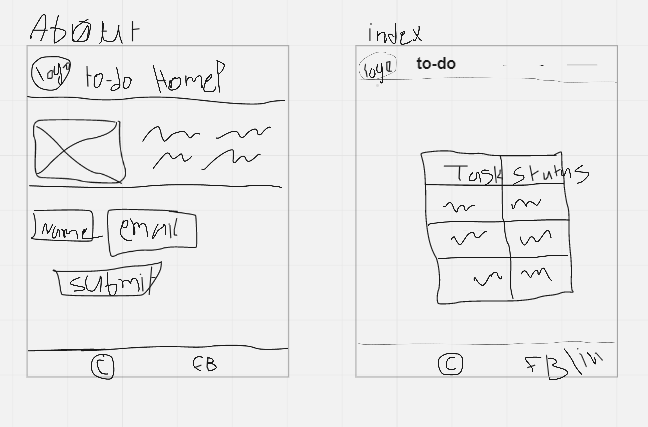 About
logo to-do HomeP
Name email
submit
C FB
index
logo to-do
Task Status
C FB\in